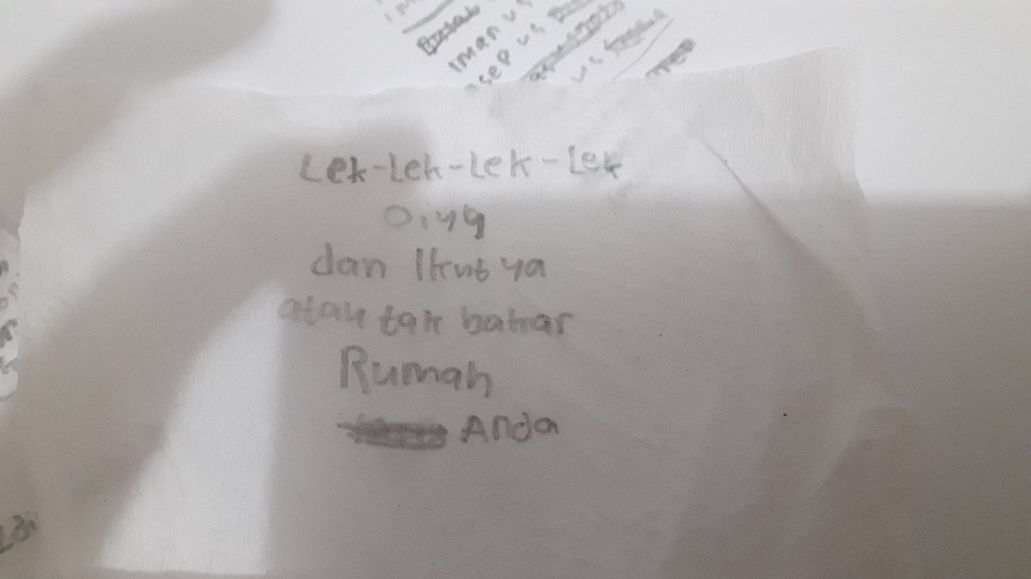 iman us
sep us
Lek-Lek-Lek-Lek
O.iya
dan Ikut ya
atau tak bakar
Rumah
Anda